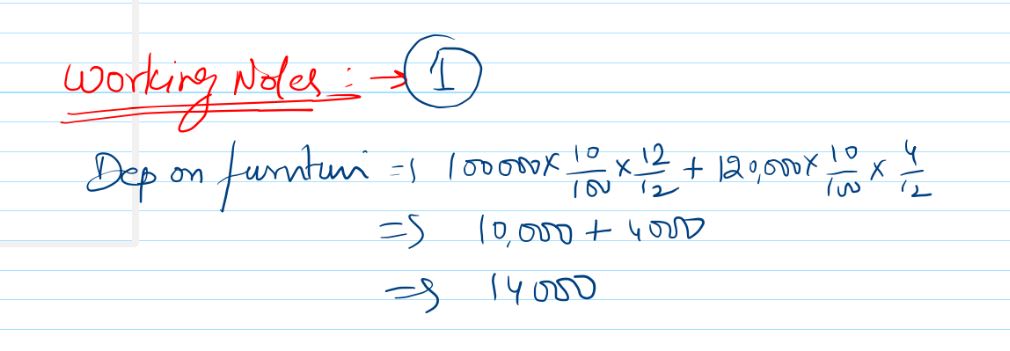 Working Notes : → 1
Dep on furnituri => 100000 × 10/100 × 12/12 + 120,000 × 10/100 × 4/12
=> 10,000 + 4000
=> 14000